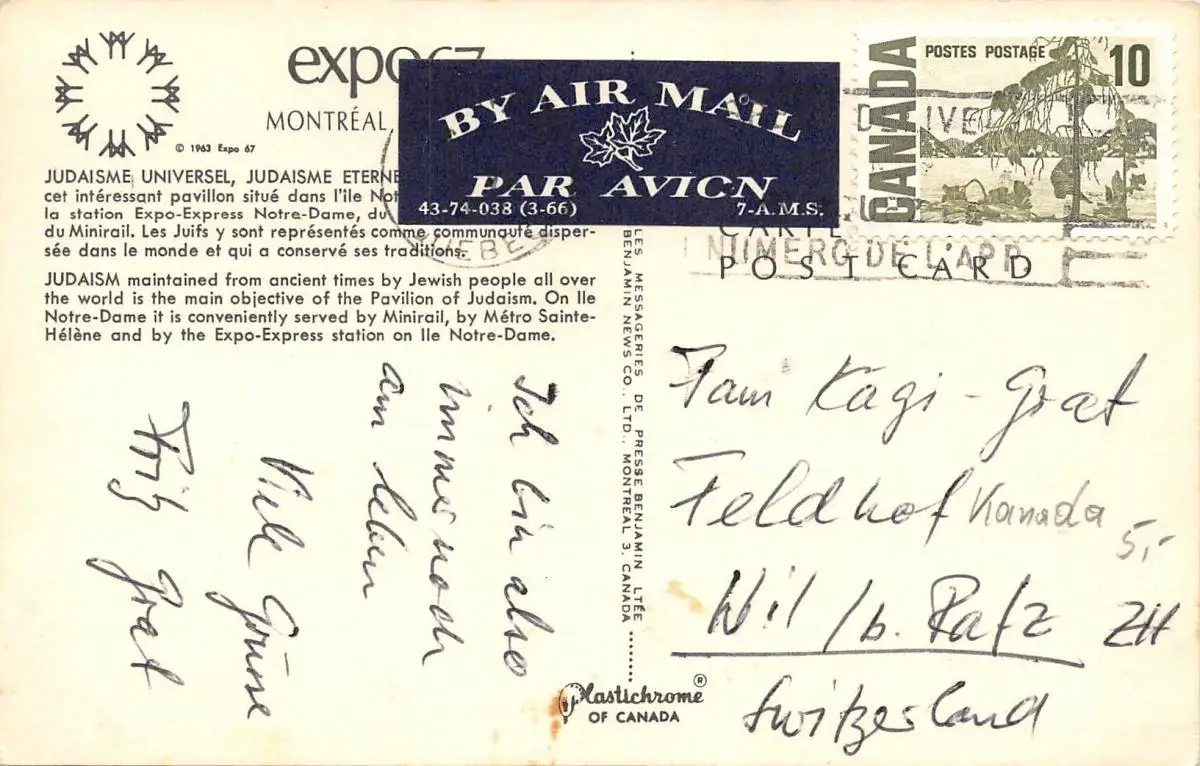 expo67
MONTRÉAL
© 1963 Expo 67
JUDAISME UNIVERSEL, JUDAISME ETERNE
cet intéressant pavillon situé dans l'île Not
la station Expo-Express Notre-Dame, du
du Minirail. Les Juifs y sont représentés comme communauté disper-
sée dans le monde et qui a conservé ses traditions.
JUDAISM maintained from ancient times by Jewish people all over
the world is the main objective of the Pavilion of Judaism. On Ile
Notre-Dame it is conveniently served by Minirail, by Métro Sainte-
Hélène and by the Expo-Express station on Ile Notre-Dame.
Ich bin also
immer noch
am leben
Viele Grüsse
Fritz Graf
BY AIR MAIL
PAR AVION
43-74-038 (3-66)
7-A.M.S.
LES MESSAGERIES DE PRESSE BENJAMIN LTÉE
BENJAMIN NEWS CO., LTD., MONTREAL 3, CANADA
Plastichrome®
OF CANADA
CANADA
POSTES POSTAGE
10
NUMERO DE L'APP
POST CARD
Fam Kagi - Graf
Feldhof
Kanada
5,-
Wil /b. Rafz ZH
Switzerland